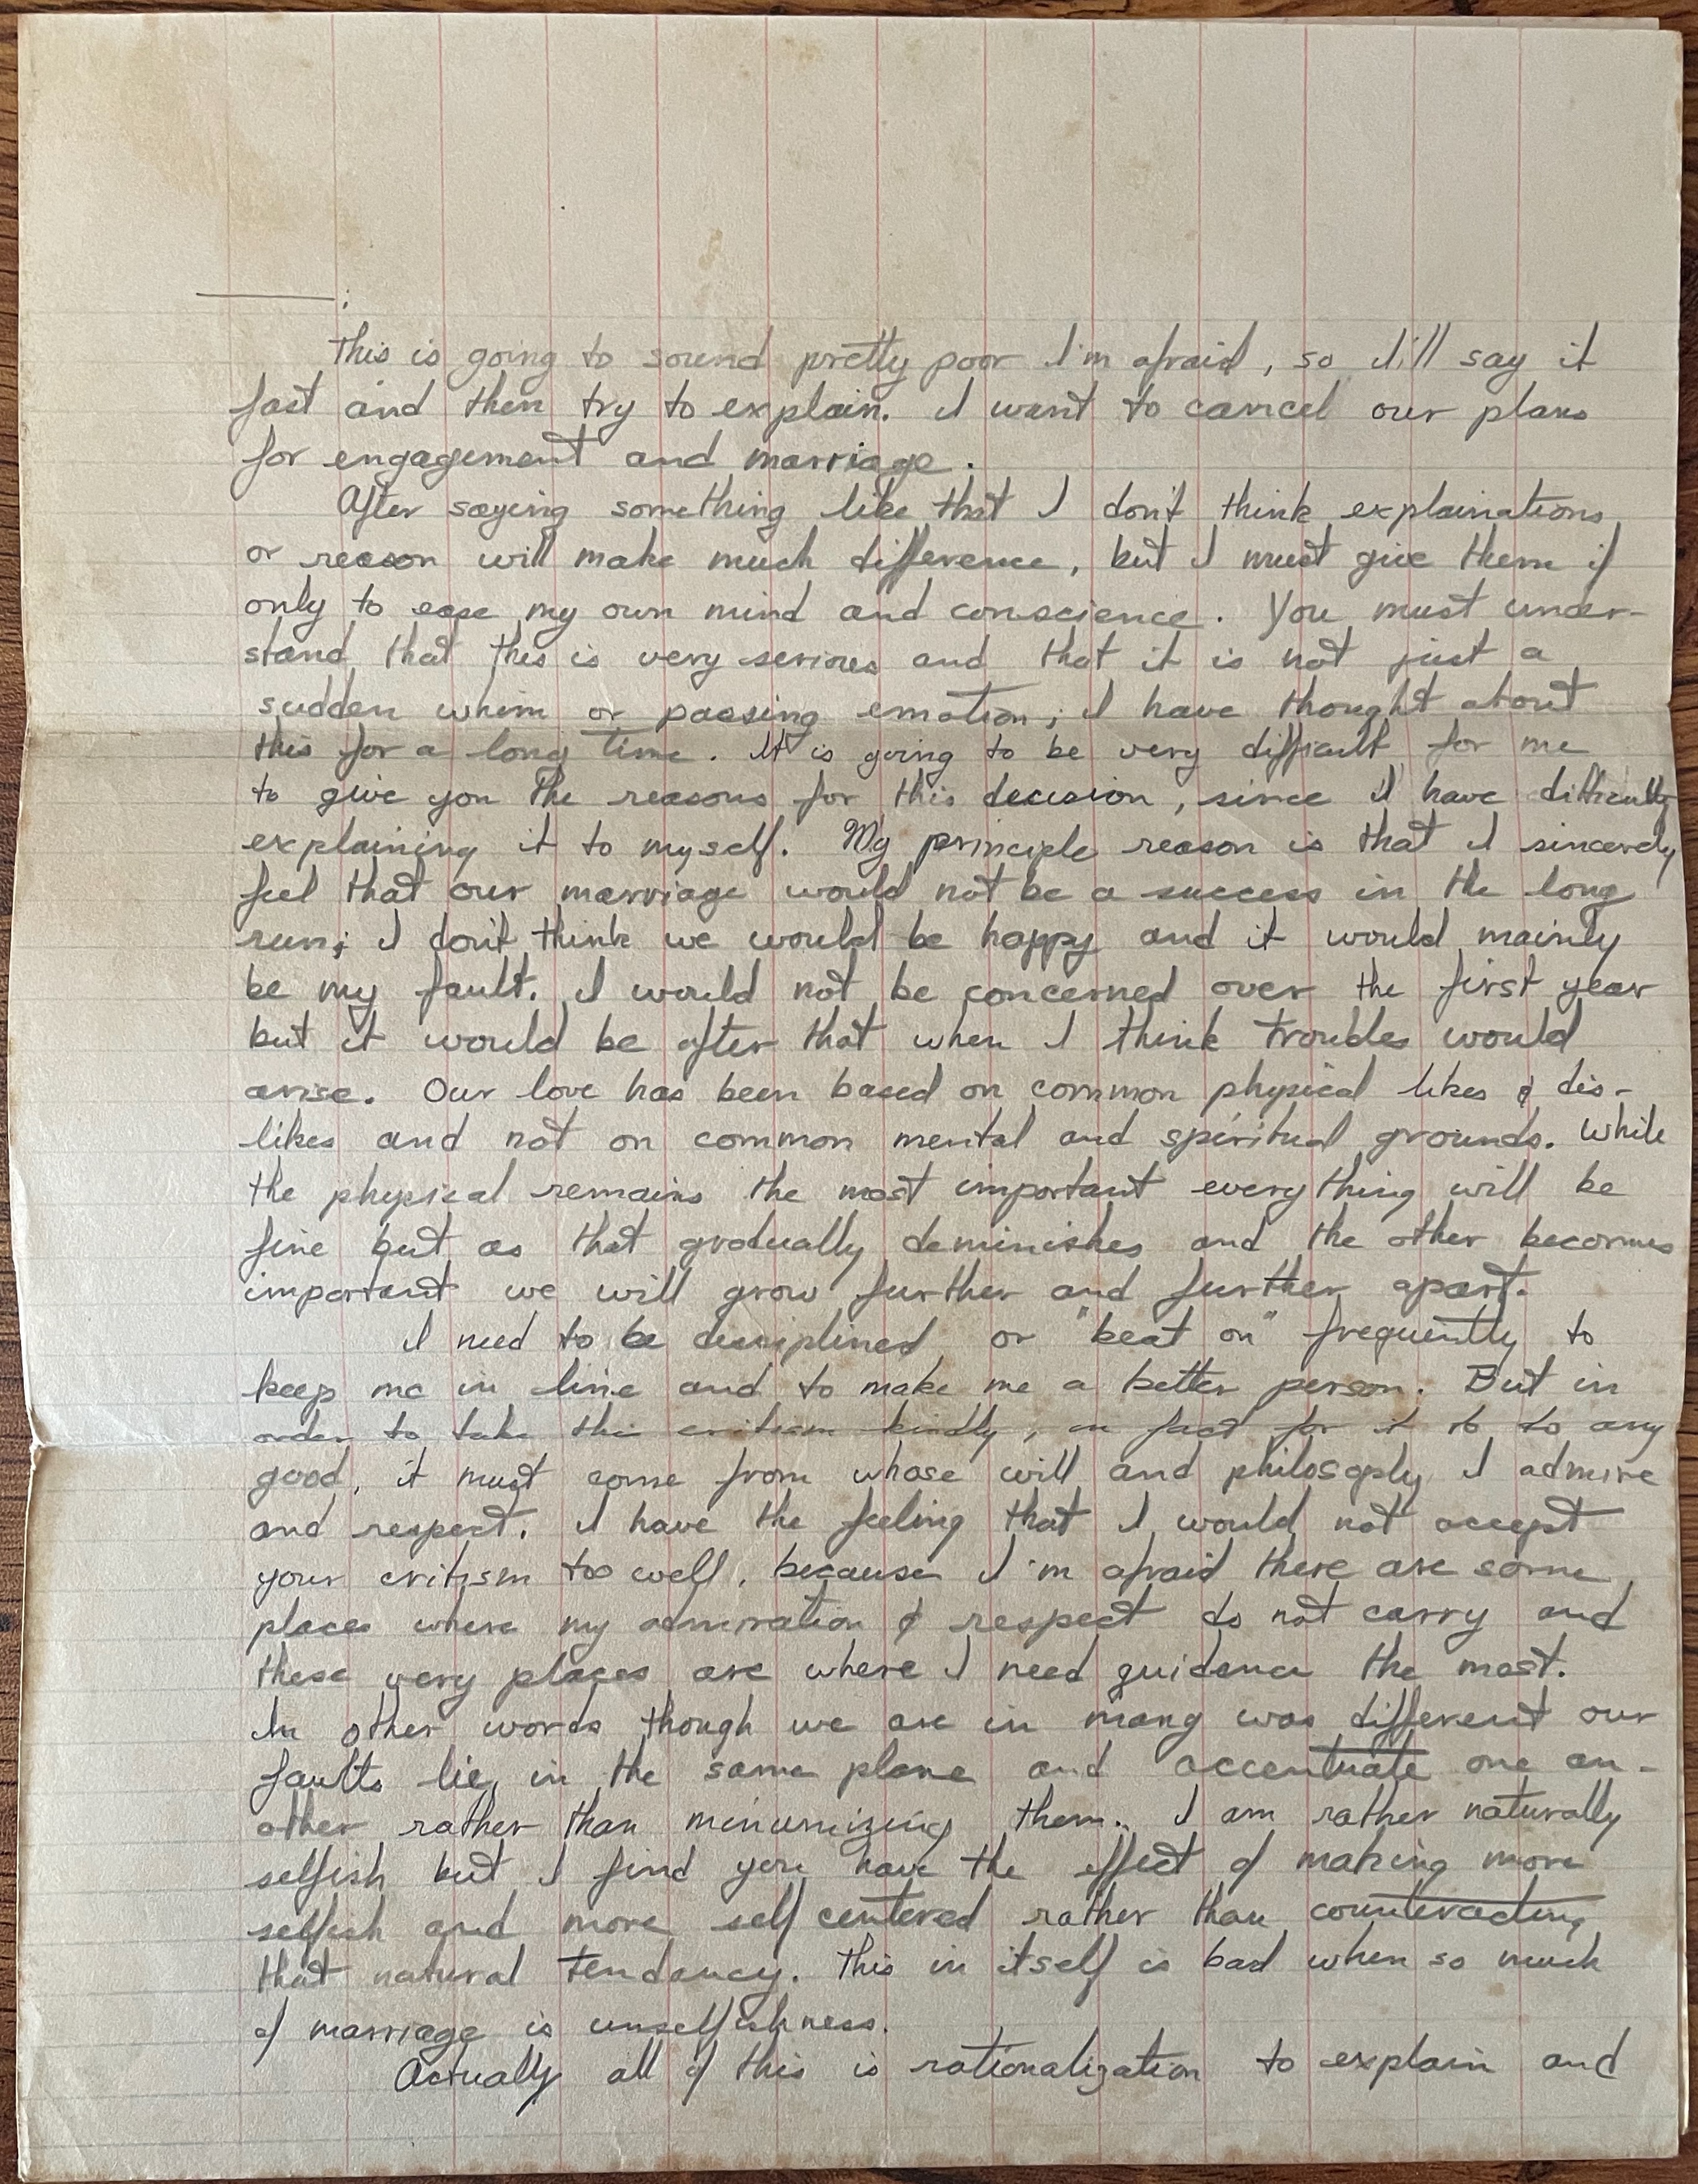 ______;
This is going to sound pretty poor I'm afraid, so I'll say it
fast and then try to explain. I want to cancel our plans
for engagement and marriage.
After saying something like that I don't think explainations
or reason will make much difference, but I must give them if
only to ease my own mind and conscience. You must under-
stand that this is very serious and that it is not just a
sudden whim or passing emotion; I have thought about
this for a long time. It is going to be very difficult for me
to give you the reasons for this decision, since I have difficulty
explaining it to myself. My principle reason is that I sincerely
feel that our marriage would not be a success in the long
run; I don't think we would be happy and it would mainly
be my fault. I would not be concerned over the first year
but it would be after that when I think troubles would
arise. Our love has been based on common physical likes & dis-
likes and not on common mental and spiritual grounds. While
the physical remains the most important everything will be
fine but as that gradually deminishes and the other becomes
important we will grow further and further apart.
I need to be desciplined or "beat on" frequently to
keep me in line and to make me a better person. But in
order to take this critism kindly, in fact for it to do any
good, it must come from whose will and philosophy I admire
and respect. I have the feeling that I would not accept
your critism too well, because I'm afraid there are some
places where my admiration & respect do not carry and
these very places are where I need guidence the most.
In other words though we are in many was different our
faults lie in the same plane and accentuate one an-
other rather than minumizing them. I am rather naturally
selfish but I find you have the effect of making more
selfish and more self centered rather than counteracting
that natural tendancy. This in itself is bad when so much
of marriage is unselfishness.
Actually all of this is rationalization to explain and